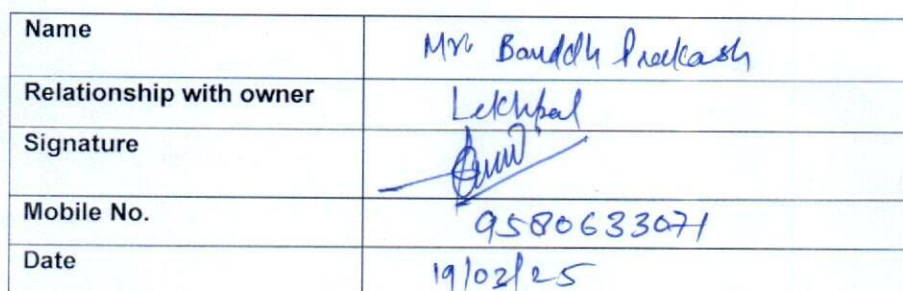 Name Mr. Bauddh Prakash
Relationship with owner Lekhpal
Signature
Mobile No. 9580633071
Date 19/03/25